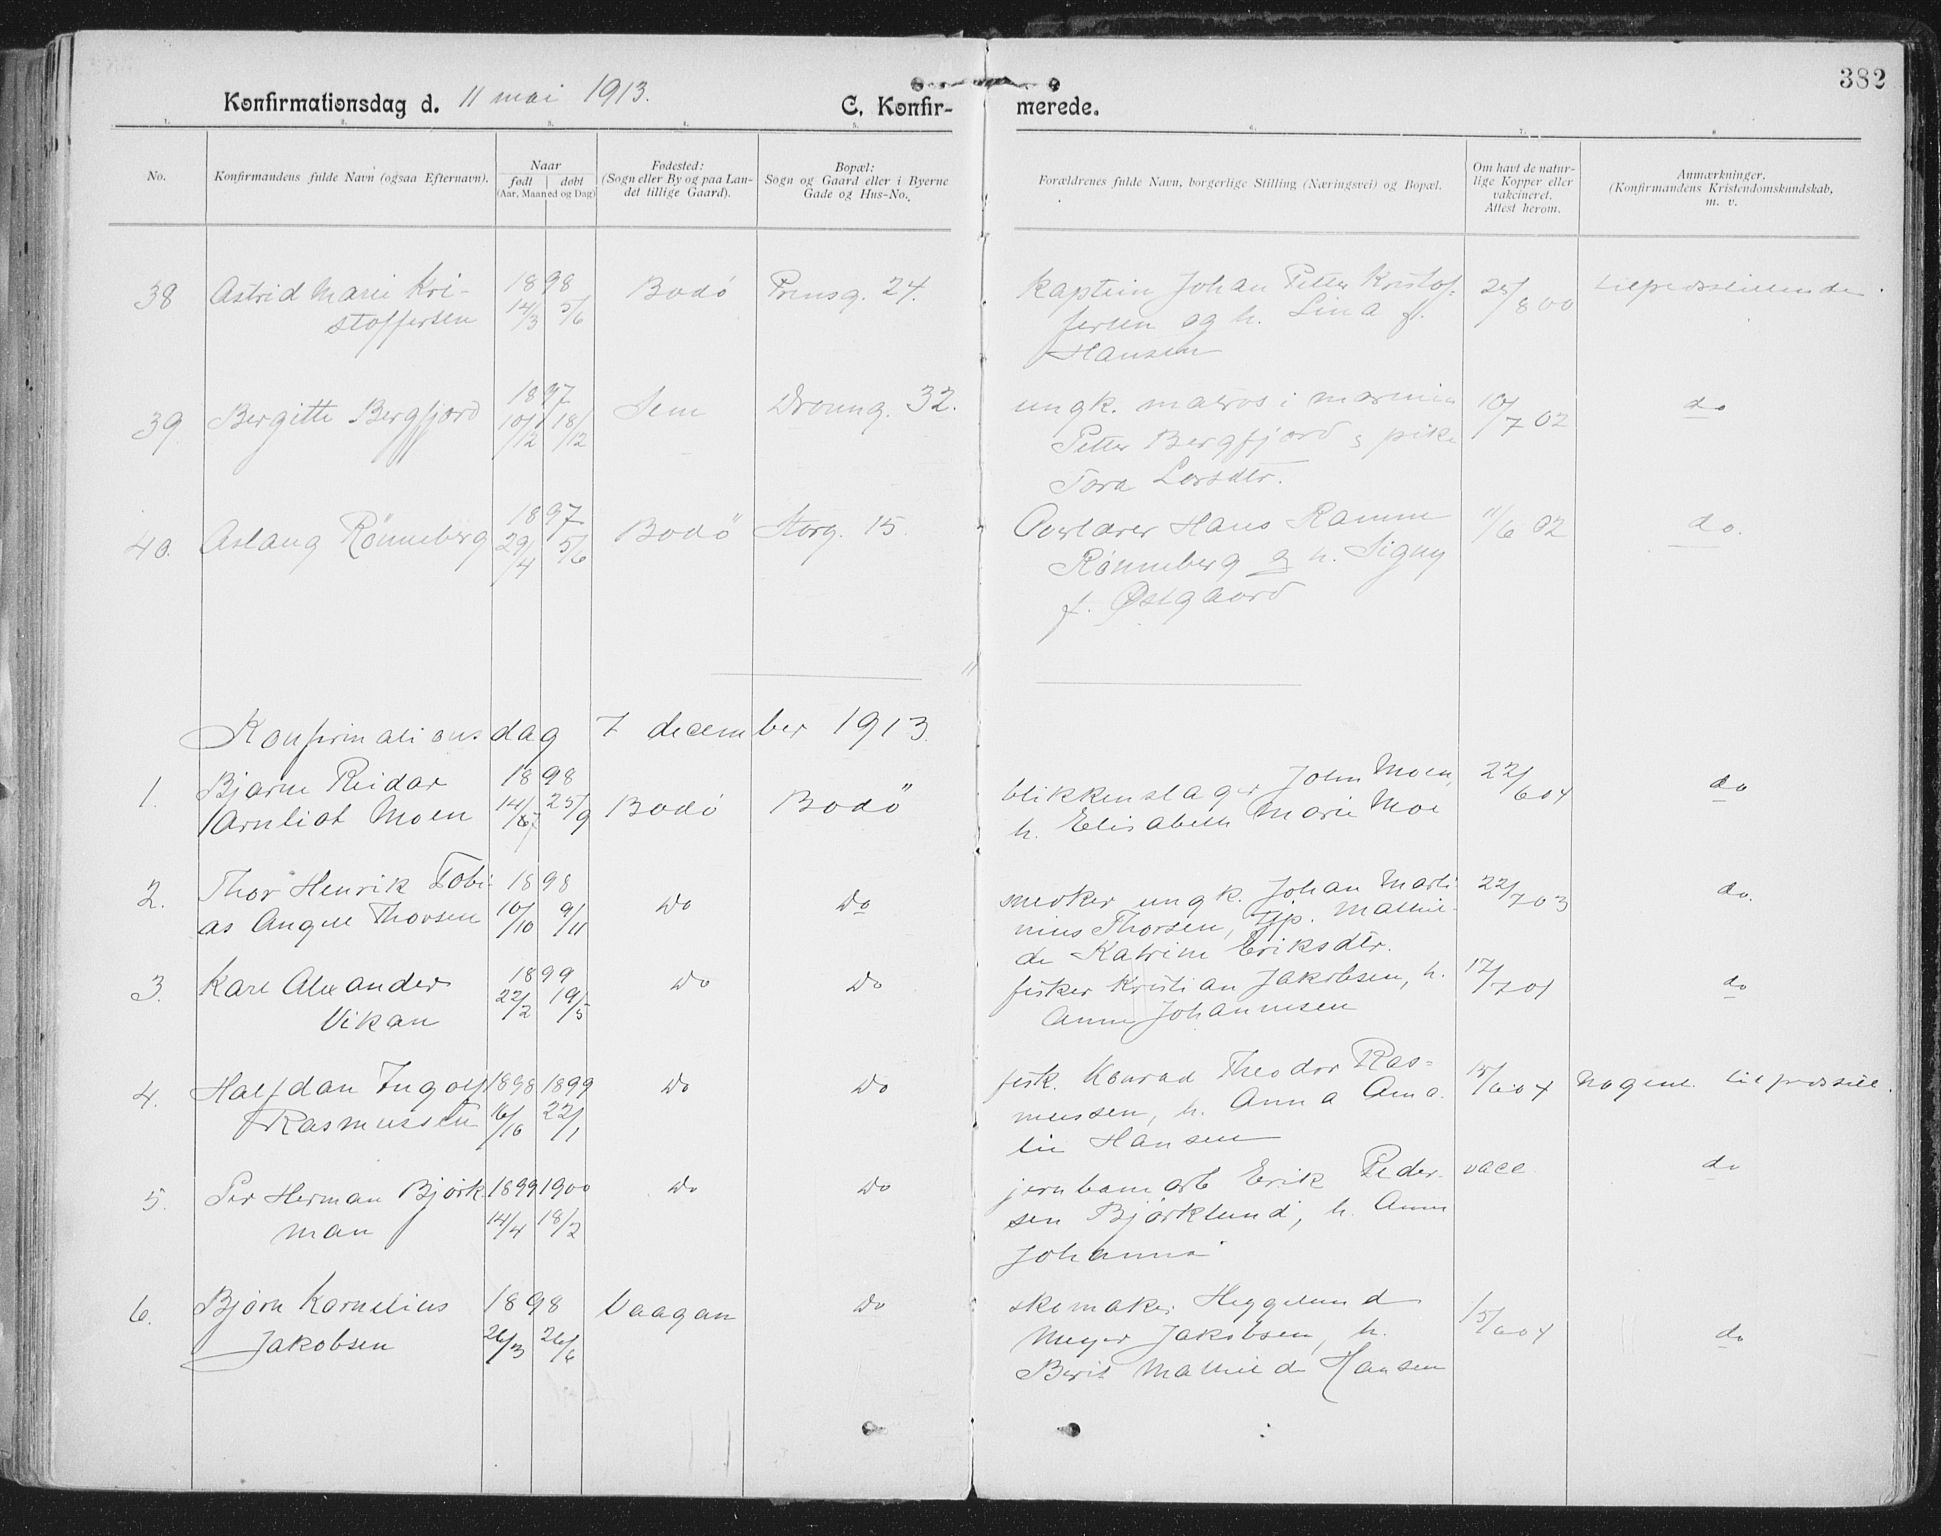 382
Konfirmationsdag d. 11 mai 1913. C. Konfir- merede.
1. 2. 3. 4. 5. 6. 7. 8
No.
Konfirmandens fulde Navn (ogsaa Efternavn).
Naar
født døbt
(Aar, Maaned og Dag)
Fødested:
(Sogn eller By og paa Lan-
det tillige Gaard).
Bopæl:
Sogn og Gaard eller i Byerne
Gade og Hus-No.
Forældrenes fulde Navn, borgerlige Stilling (Næringsvei) og Bopæl.
Om havt de natur-
lige Kopper eller
vakcineret.
Attest herom.
Anmærkninger.
(Konfirmandens Kristendomskundskab,
m. v.
38 Astrid Marie Kri-
stoffersen
1898
14/3 5/6
Bodö Prinsg. 24.
Kaptein Johan Petter Kristof-
fersen og h. Lina f.
Hansen
25/8 00 tilfredsstillende.
39 Bergitte Bergfjord
1897
10/12 18/12
Sem Dronng. 32.
ungk. matros i marinen
Petter Bergfjord & pike
Tora Larsdtr.
10/7 02 do
40. Aslaug Rönneberg
1897
29/4 5/6
Bodö Storg. 15.
Overlærer Hans Ramm
Rönneberg og h. Signy
f. Østgaard
11/6 02 do.
Konfirmationsdag 7 december 1913.
1. Bjarne Reidar
Arnliot Moen
1898
14/7 25/9
Bodö Bodö
blikkenslager John Moen,
h. Elisabeth Marie Moe
22/6 04 do
2. Thor Henrik Tobi-
as Angell Thorsen
1898
10/10 9/11
Do Do
snedker ungk. Johan Marti-
nius Thorsen, Tjp. Mathil-
de Katrine Eriksdtr.
22/7 03 do.
3. Karl Alexander
Vikan
1899
22/2 19/5
Do Do
fisker Kristian Jakobsen, h.
Anna Johannesen
17/7 01 do
4. Halfdan Ingolf
Rasmussen
1898 1899
16/10 22/1
Do Do
fisk. Konrad Theodor Ras-
mussen, h. Anna Ama
lie Hansen
15/6 04 Nogenl. tilfredsstill.
5. Per Herman Björk
man
1899 1900
14/4 18/2
Do Do
jernbanearb Erik Peder-
sen Björklund, h. Anna
Johanna
vacc do
6. Bjørn Kornelius
Jakobsen
1898
26/3 26/6
Vaagan Do
skomaker Heggelund
Meyer Jakobsen, h.
Berit Mathilde Hansen
15/6 04 do